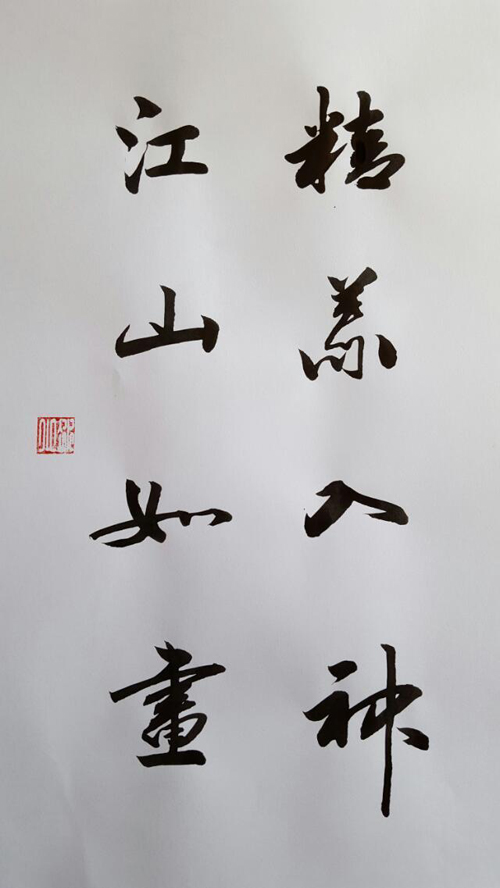 精義入神
江山如畫